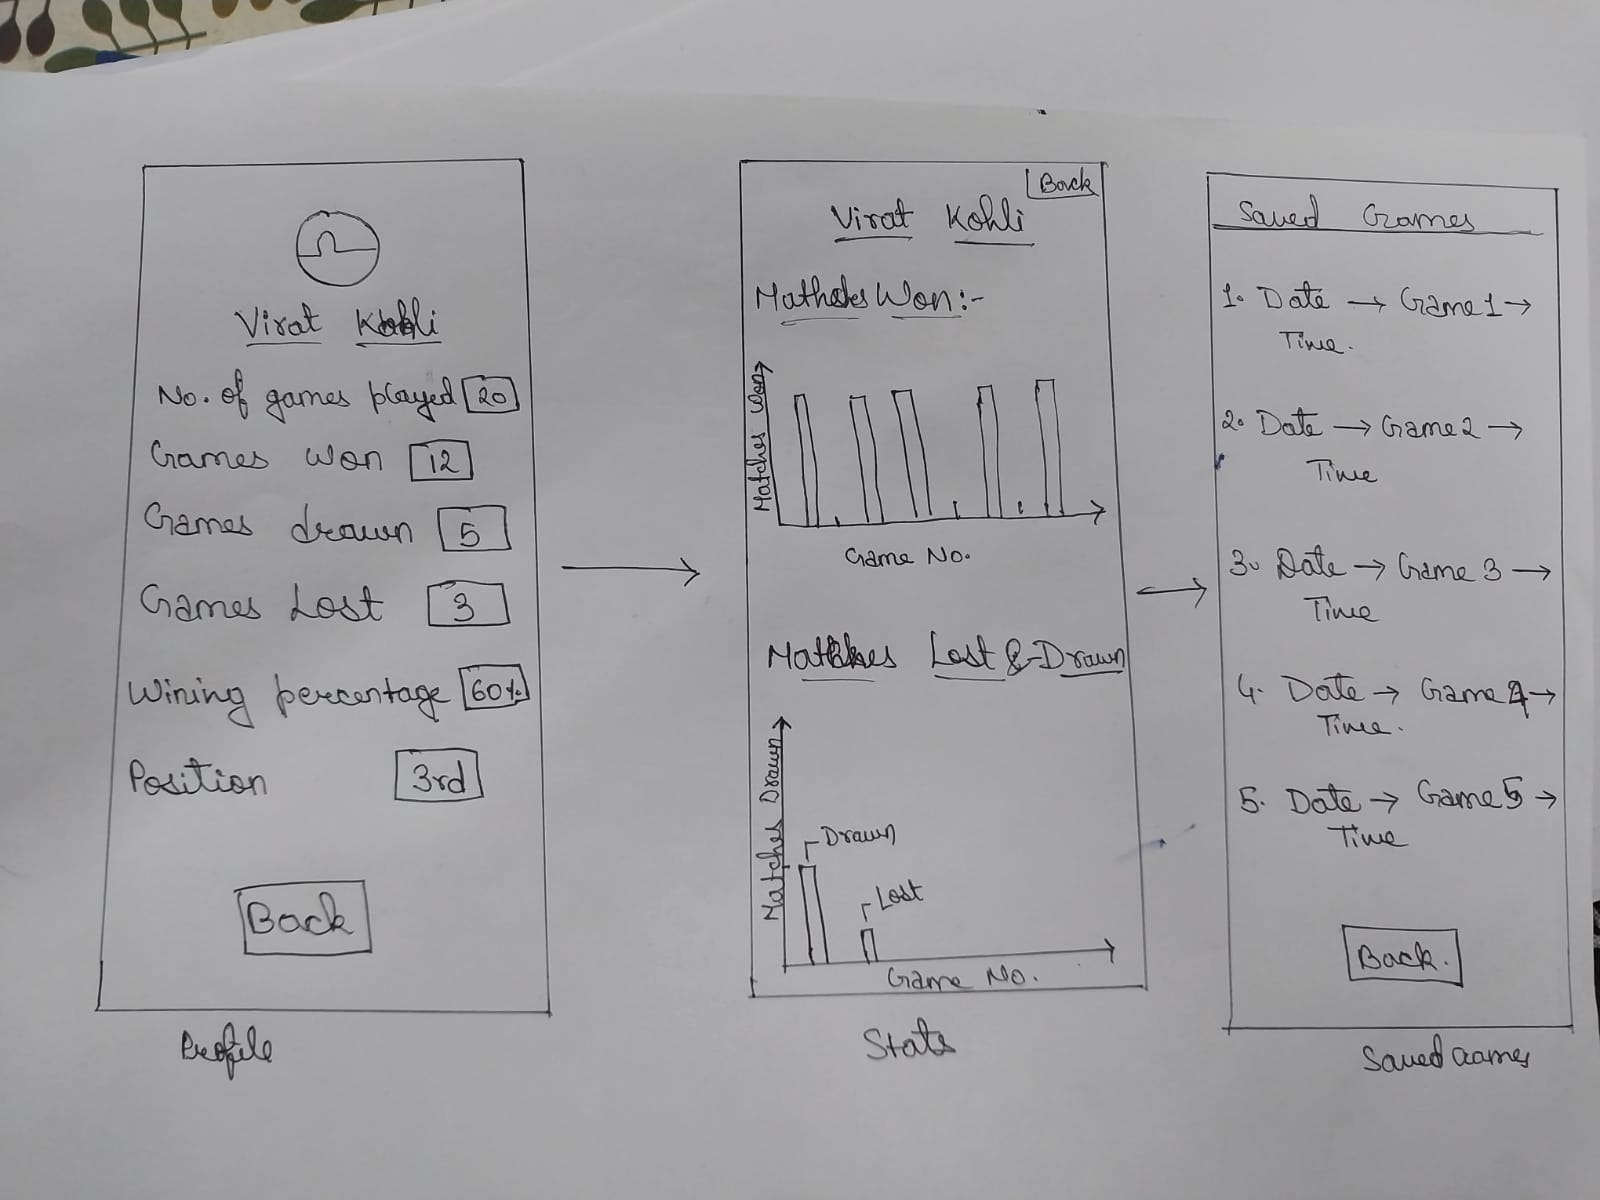 Virat Kohli
No. of games played 20
Games won 12
Games drawn 5
Games Lost 3
Wining percentage 60%
Position 3rd
Back
Profile
Back
Virat Kohli
Mathches Won:-
Matches Won
Game No.
Matches Lost & Drawn
Matches Drawn
Drawn
Lost
Game No.
Stats
Saved Games
1. Date → Game 1 →
Time.
2. Date → Game 2 →
Time
3. Date → Game 3 →
Time
4. Date → Game 4 →
Time.
5. Date → Game 5 →
Time
Back.
Saved Games